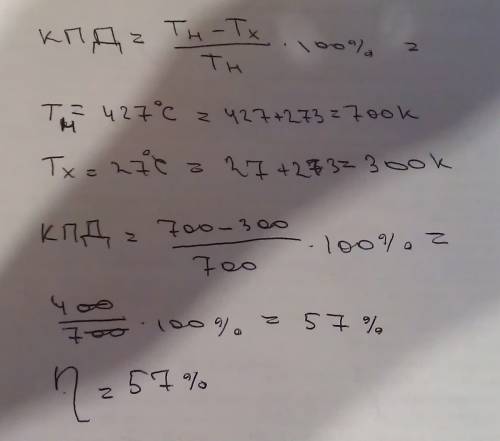 КПД = Tн - Tх / Tн · 100% =
Tн = 427°C = 427 + 273 = 700K
Tх = 27°C = 27 + 273 = 300K
КПД = 700 - 300 / 700 · 100% =
400 / 700 · 100% = 57%
η = 57%